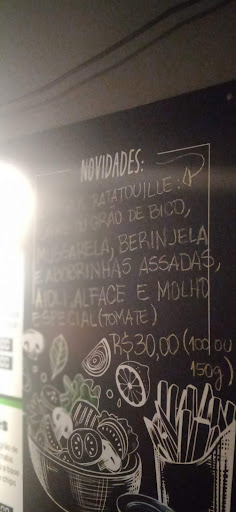 NOVIDADES:
RATATOUILLE:
OU GRÃO DE BICO,
MUSSARELA, BERINJELA
E ABOBRINHAS ASSADAS,
AIOLI, ALFACE E MOLHO
ESPECIAL (TOMATE)
R$30,00 (100 OU
150g)